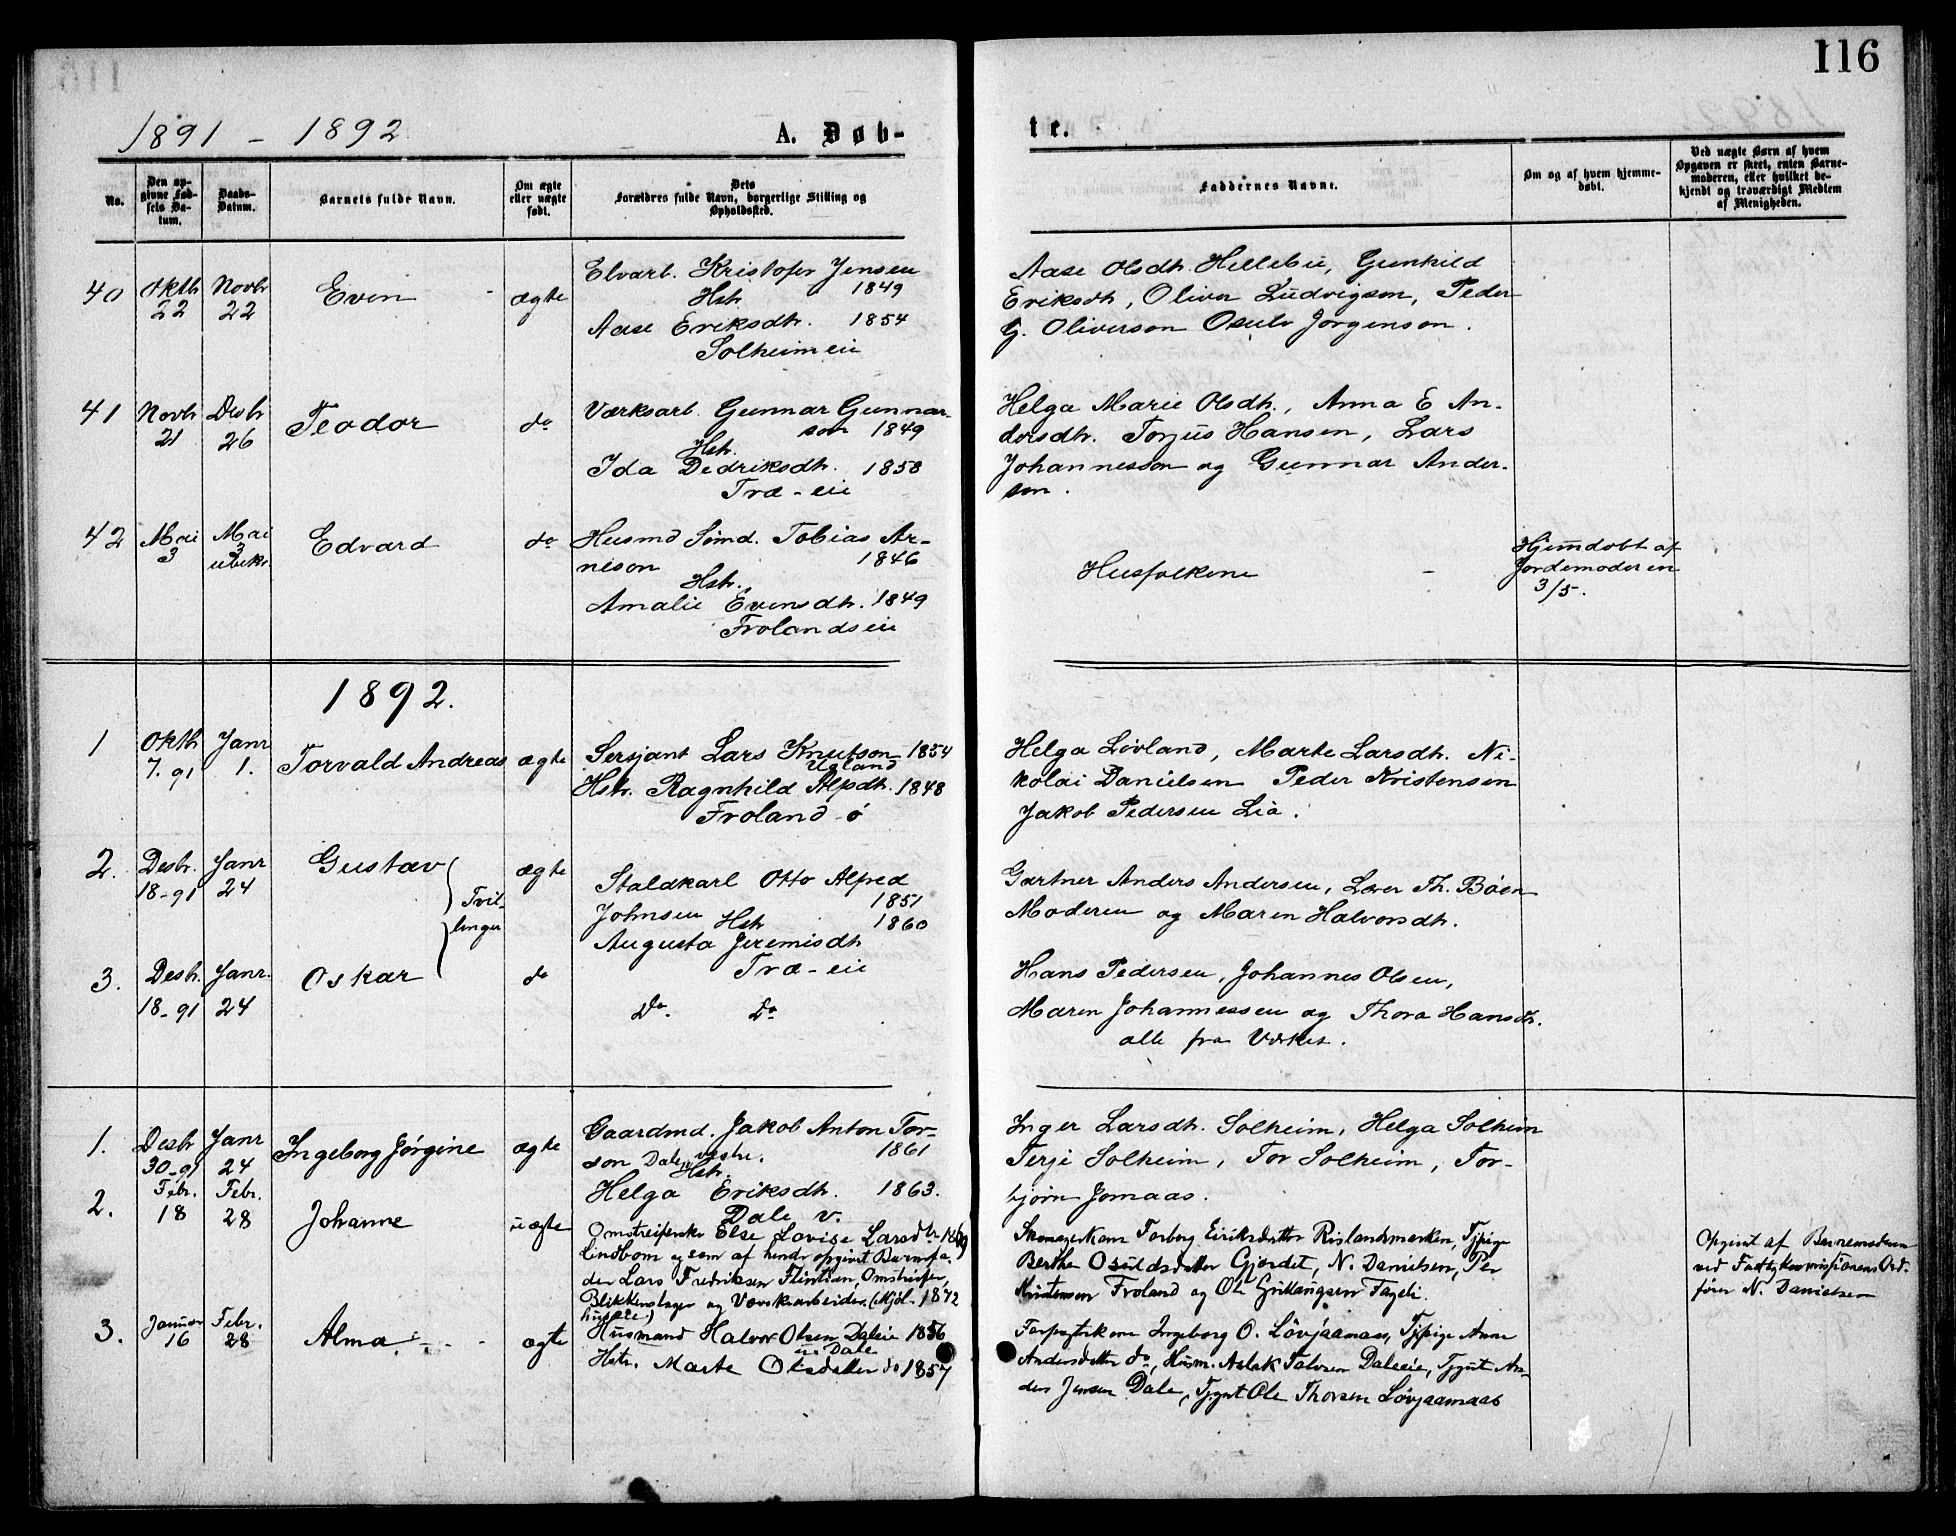 116
1891 - 1892
A. Døb-
te.
No.
Den op-
givne Fød-
sels Da-
tum.
Daabs-
Datum.
Barnets fulde Navn.
Om ægte
eller uægte
født.
Dets
Forældres fulde Navn, borgerlige Stilling og
Opholdssted.
Faddernes Navne.
Om og af hvem hjemme-
døbt.
Ved uægte Børn af hvem
Opgaven er skeet, enten Barne-
moderen, eller hvilket be-
kjendt og troværdigt Medlem
af Menigheden.
40
Oktb
22
Novbr
22
Even
ægte
Elvarb. Kristofer Jensen
1849
Hstr
Aase Eriksdtr. 1854
Solheimeie
Aase Olsdtr. Hillebu, Gunhild
Eriksdtr, Oliver Ludvigsen, Peder
G. Oliverson Osulv Jørgenson.
41
Novbr
21
Desbr
26
Teodor
do
Værksarb. Gunnar Gunnar-
son 1849
Hstr.
Ida Dedriksdtr. 1858
Træ-eie
Helga Marie Olsdtr., Anna E An-
dersdtr. Torjus Hansen, Lars
Johannesson og Gunnar Ander-
son.
42
Mai
3
Mai
3
Edvard
do
Husmd Sømd. Tobias Ar-
nison 1846
Hstr.
Amalie Evensdtr. 1849
Frolandseie
Husfolkene
Hjemdøbt af
Jordemoderen
3/5.
1892.
1
Oktb
7. 91
Janr
1.
Torvald Andreas
ægte
Sersjant Lars Knutson 1854
Ugland
Hstr. Ragnhild Alfsdtr. 1848
Froland ø
Helga Løvland, Marte Larsdtr. Ni-
kolai Danielsen Peder Kristensen
Jakob Pedersen Lia.
2.
Desbr.
18-91
Janr
24
Gustav
Tvil-
linger
ægte
Staldkarl Otto Alfred
1851
Johnsen Hstr 1860
Augusta Jeremisdtr
Træ-eie
Gartner Anders Andersen, Lærer Th. Bøen
Moderen og Maren Halvorsdtr.
3.
Desbr.
18-91
Janr.
24
Oskar
do
Do. Do
Hans Pedersen, Johannes Olsen,
Maren Johannessen og Thora Hansdtr.
alle fra Værket.
1.
Desbr
30-91
Janr
24
Ingeborg Jørgine
ægte
Gaardmd. Jakob Anton Tor-
son Dale vestre. 1861
Hstr.
Helga Eriksdtr. 1863.
Dale v.
Inger Larsdtr. Solheim, Helga Solheim
Terje Solheim, Tor Solheim, Tor-
bjørn Jomaas.
2.
Febr.
18
Febr.
28
Johanne
uægte
Omstreiferske Else Lovise Larsdtr
Lindbom og som af hende opgivet Barnefa-
der Lars Fredriksen Flintian, Omstreifer,
Blikkenslager og Værksarbeider. 1872
Torborg Eiriksdatter Rislandsmarken, Tjpige
Berthe Osuldsdatter Gjerdet, N. Danielsen, Per
Kristensen Froland og Ole
Opgivet af Barnemoderen
ved Fattigkommisjonens Ord-
fører N. Danielsen
3.
Januar
16
Febr.
28
Alma
ægte
Husmand Halvor Olsen Daleie 1856
u. Dale
Hstr. Marte Olsdatter do 1857
Ingeborg O. Løvjaamaas, Tjpige Anne
Andersdatter do, Husm. Aslak Talvsen Daleeie, Tjgut An-
ders Jensen Dale, Tjgut Ole Thorsen Løvjaamaas